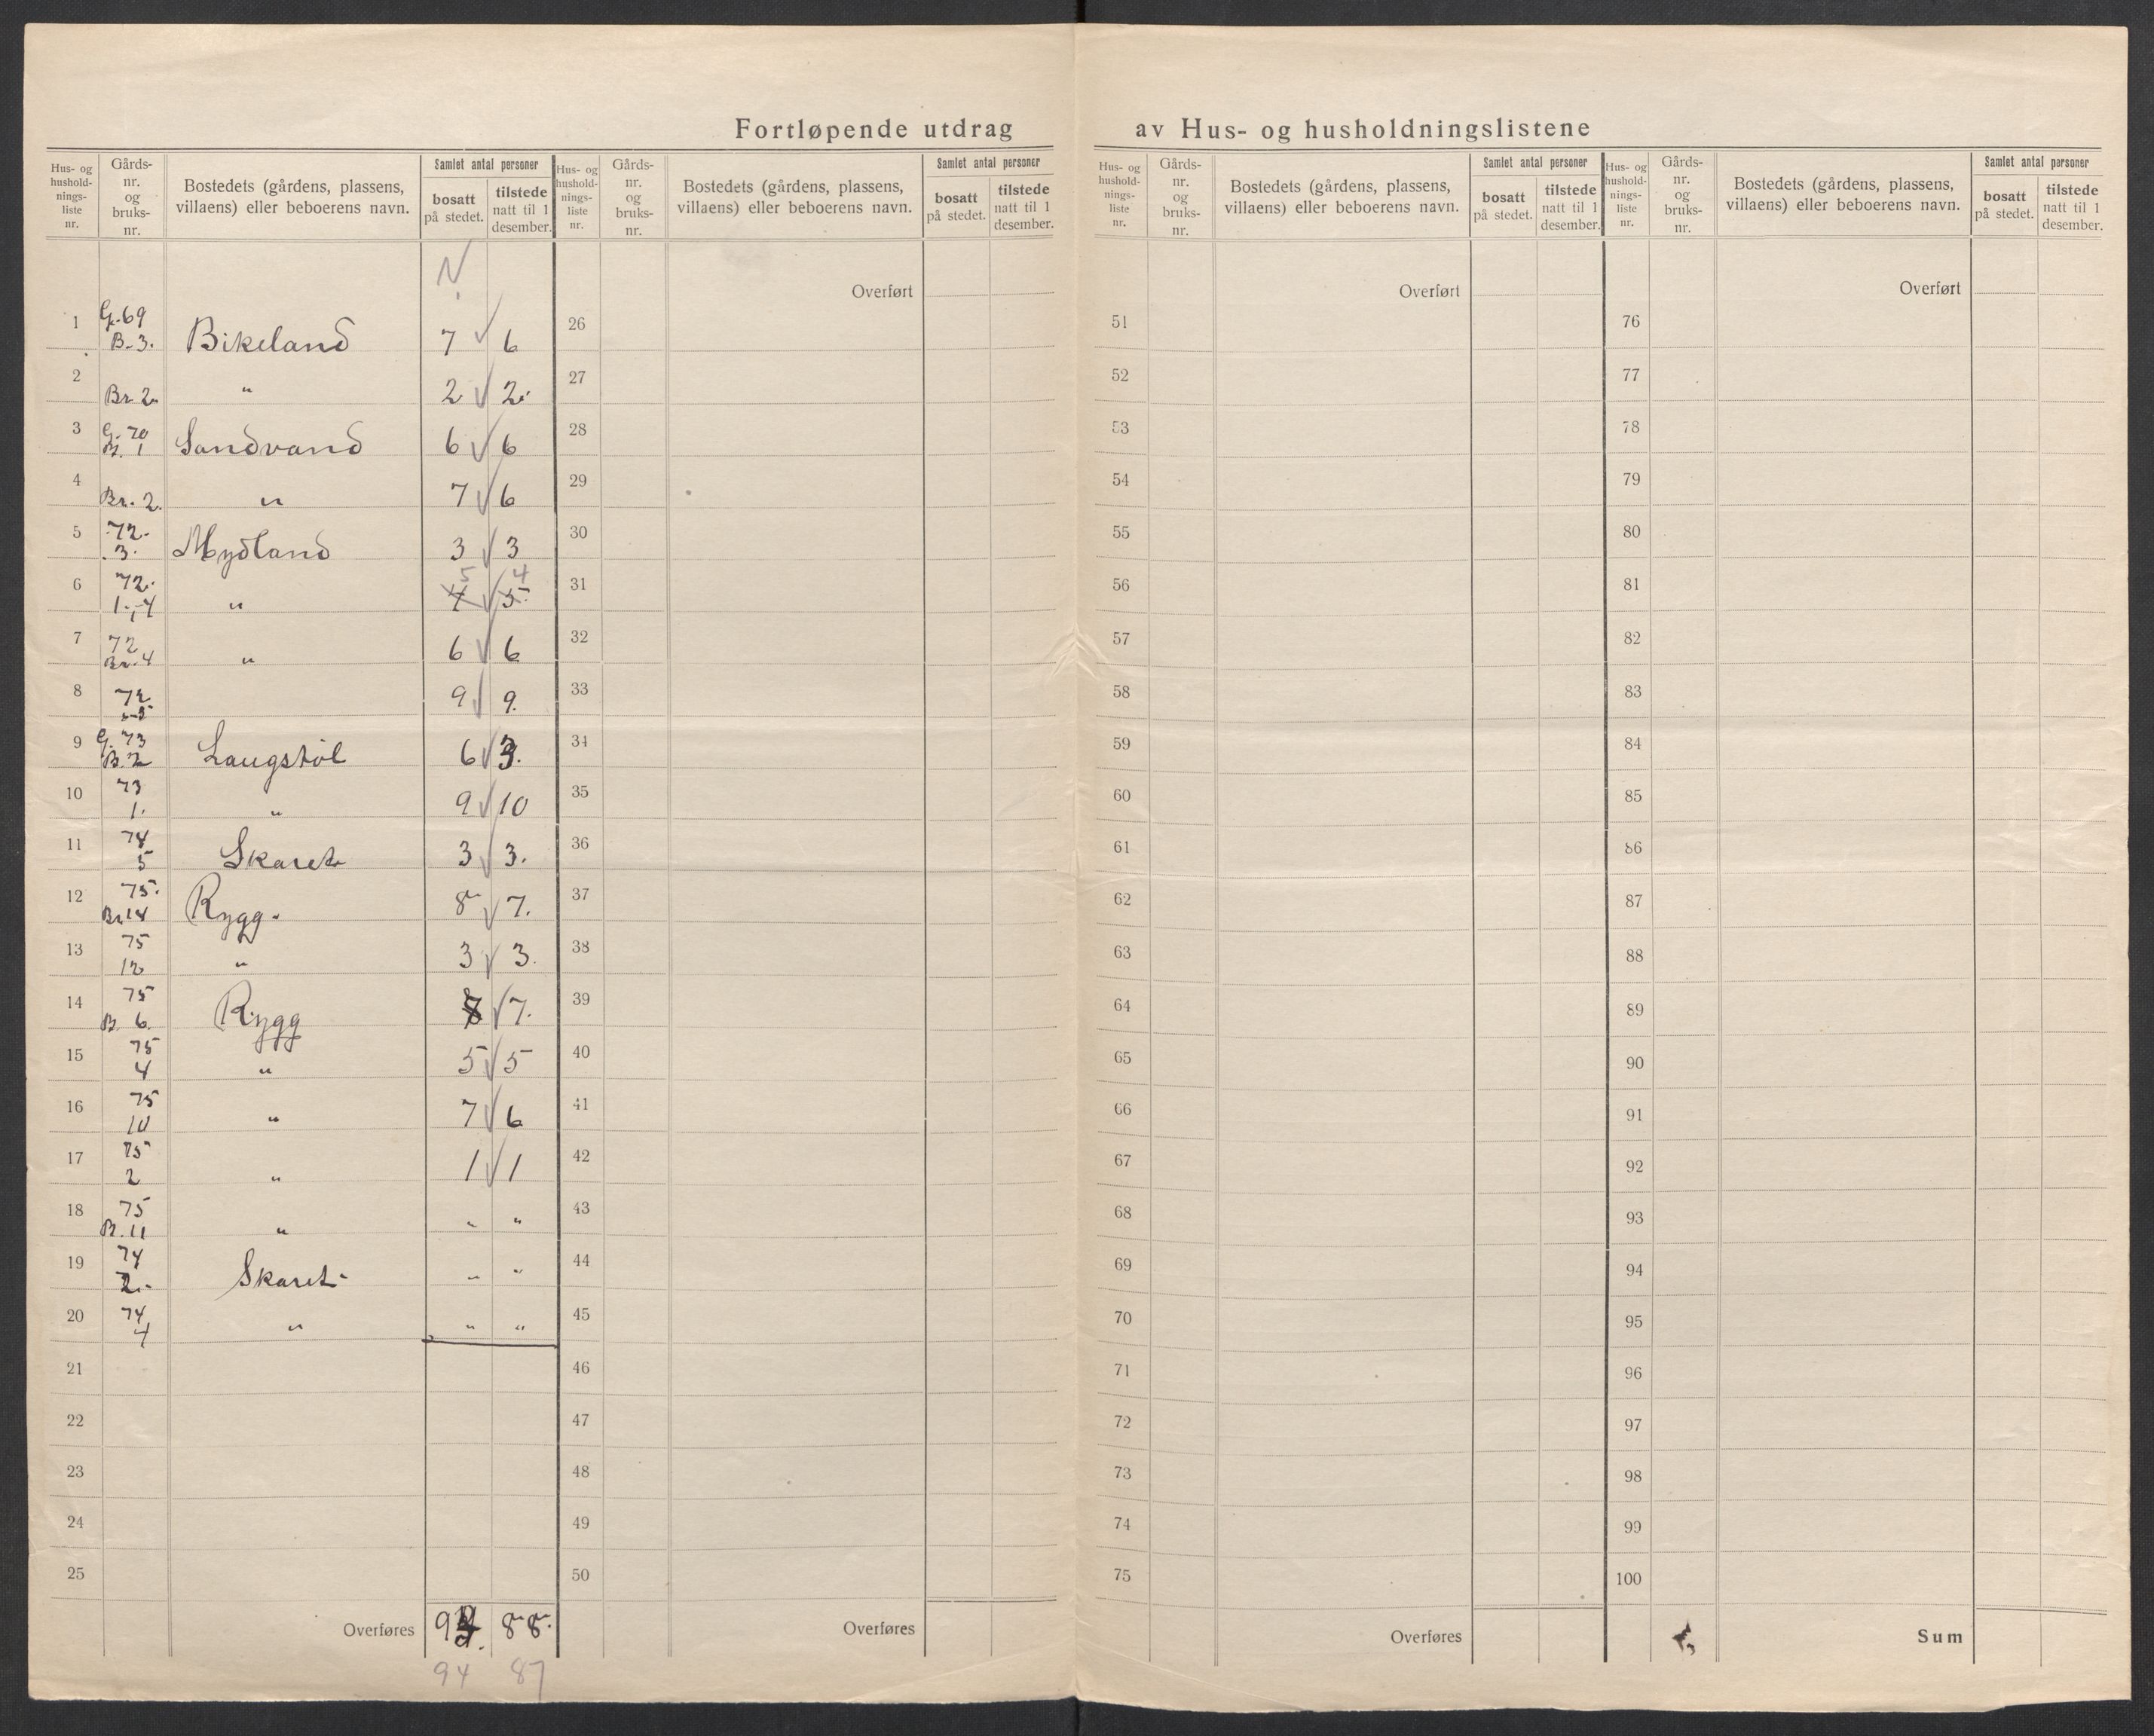 Fortløpende utdrag av Hus- og husholdningslistene
Hus- og hushold-nings-liste nr. Gårds-nr. og bruks-nr. Bostedets (gårdens, plassens, villaens) eller beboerens navn. Samlet antal personer bosatt på stedet. tilstede natt til 1 desember.
Hus- og hushold-nings-liste nr. Gårds-nr. og bruks-nr. Bostedets (gårdens, plassens, villaens) eller beboerens navn. Samlet antal personer bosatt på stedet. tilstede natt til 1 desember.
Hus- og hushold-nings-liste nr. Gårds-nr. og bruks-nr. Bostedets (gårdens, plassens, villaens) eller beboerens navn. Samlet antal personer bosatt på stedet. tilstede natt til 1 desember.
Hus- og hushold-nings-liste nr. Gårds-nr. og bruks-nr. Bostedets (gårdens, plassens, villaens) eller beboerens navn. Samlet antal personer bosatt på stedet. tilstede natt til 1 desember.
N
1 G.69 B.3. Bikeland 7 6
2 Br. 2. " 2 2.
3 G. 70 B. 1 Sandvand 6 6
4 Br. 2. " 7 6
5 72. 3. Mydland 3 3
6 72. 1-,4 " 5 4
7 72 Br. 4 " 6 6
8 72 9 9.
9 G. 73 B. 2 Laugstöl 6 3.
10 73 1. " 9 10
11 74 5 Skaret 3 3.
12 75. Br. 14 Rygg. 8 7.
13 75 12 " 3 3.
14 75 B. 6. Rygg 7.
15 75 4 " 5 5
16 75 10 " 7 6
17 75 2 " 1 1
18 75 B. 11 " " "
19 74 2. Skaret " "
20 74 4 " " "
21
22
23
24
25
Overføres 88.
94 87
Overført
26
27
28
29
30
31
32
33
34
35
36
37
38
39
40
41
42
43
44
45
46
47
48
49
50
Overføres
Overført
51
52
53
54
55
56
57
58
59
60
61
62
63
64
65
66
67
68
69
70
71
72
73
74
75
Overføres
Overført
76
77
78
79
80
81
82
83
84
85
86
87
88
89
90
91
92
93
94
95
96
97
98
99
100
Sum